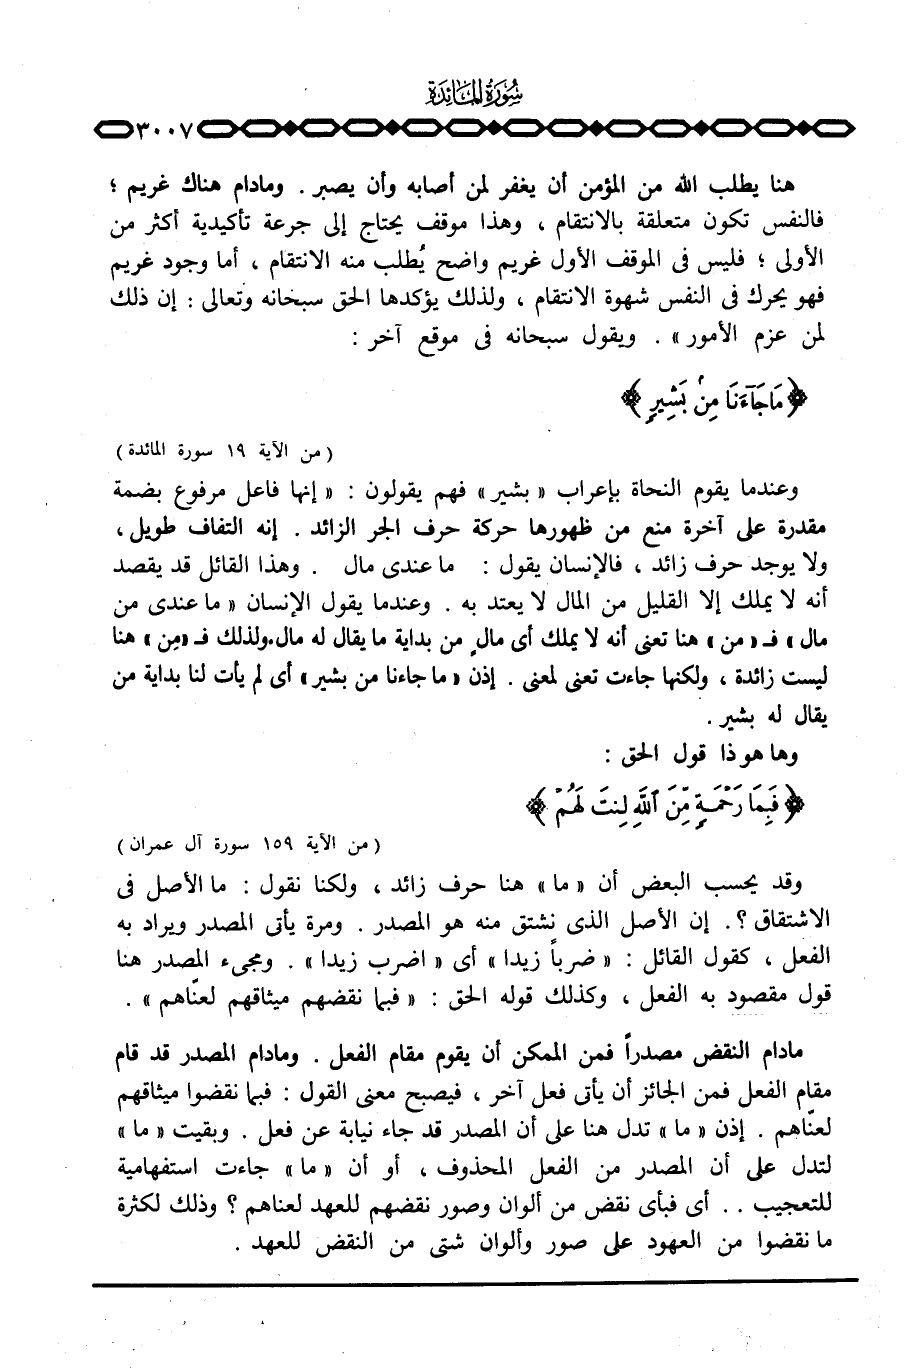 سُورَةُ المَائِدَة
٣٠٠٧
هنا يطلب الله من المؤمن أن يغفر لمن أصابه وأن يصبر . ومادام هناك غريم ؛
فالنفس تكون متعلقة بالانتقام ، وهذا موقف يحتاج إلى جرعة تأكيدية أكثر من
الأولى ؛ فليس فى الموقف الأول غريم واضح يُطلب منه الانتقام ، أما وجود غريم
فهو يحرك فى النفس شهوة الانتقام ، ولذلك يؤكدها الحق سبحانه وتعالى : إن ذلك
لمن عزم الأمور » . ويقول سبحانه فى موقع آخر :
﴿ مَا جَآءَنَا مِنۢ بَشِيرٍ ﴾
( من الآية ١٩ سورة المائدة )
وعندما يقوم النحاة بإعراب « بشير » فهم يقولون : « إنها فاعل مرفوع بضمة
مقدرة على آخرة منع من ظهورها حركة حرف الجر الزائد . إنه التفاف طويل ،
ولا يوجد حرف زائد ، فالإنسان يقول : ما عندى مال . وهذا القائل قد يقصد
أنه لا يملك إلا القليل من المال لا يعتد به . وعندما يقول الإنسان « ما عندى من
مال » فـ « من » هنا تعنى أنه لا يملك أى مالٍ من بداية ما يقال له مال.ولذلك فـ «مِن » هنا
ليست زائدة ، ولكنها جاءت تعنى لمعنى . إذن « ما جاءنا من بشير » أى لم يأت لنا بداية من
يقال له بشير .
وها هو ذا قول الحق :
﴿ فَبِمَا رَحْمَةٍ مِّنَ ٱللَّهِ لِنتَ لَهُمْ ﴾
( من الآية ١٥٩ سورة آل عمران )
وقد يحسب البعض أن « ما » هنا حرف زائد ، ولكنا نقول : ما الأصل فى
الاشتقاق ؟. إن الأصل الذى نشتق منه هو المصدر . ومرة يأتى المصدر ويراد به
الفعل ، كقول القائل : « ضرباً زيدا » أى « اضرب زيدا » . ومجىء المصدر هنا
قول مقصود به الفعل ، وكذلك قوله الحق : « فبما نقضهم ميثاقهم لعنّاهم » .
مادام النقض مصدراً فمن الممكن أن يقوم مقام الفعل . ومادام المصدر قد قام
مقام الفعل فمن الجائز أن يأتى فعل آخر ، فيصبح معنى القول : فبما نقضوا ميثاقهم
لعنّاهم . إذن « ما » تدل هنا على أن المصدر قد جاء نيابة عن فعل . وبقيت « ما »
لتدل على أن المصدر من الفعل المحذوف ، أو أن « ما » جاءت استفهامية
للتعجيب . . أى فبأى نقض من ألوان وصور نقضهم للعهد لعناهم ؟ وذلك لكثرة
ما نقضوا من العهود على صور وألوان شتى من النقض للعهد .